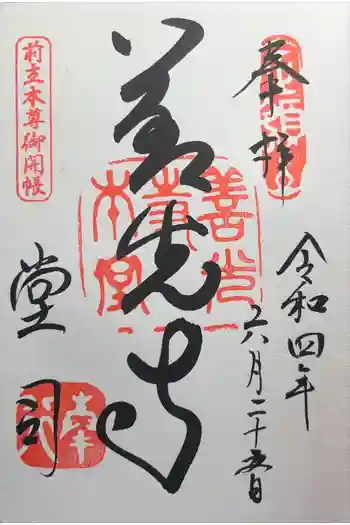 奉拝
令和四年
六月二十五日
善光寺
善光
本堂
前立本尊御開帳
堂司